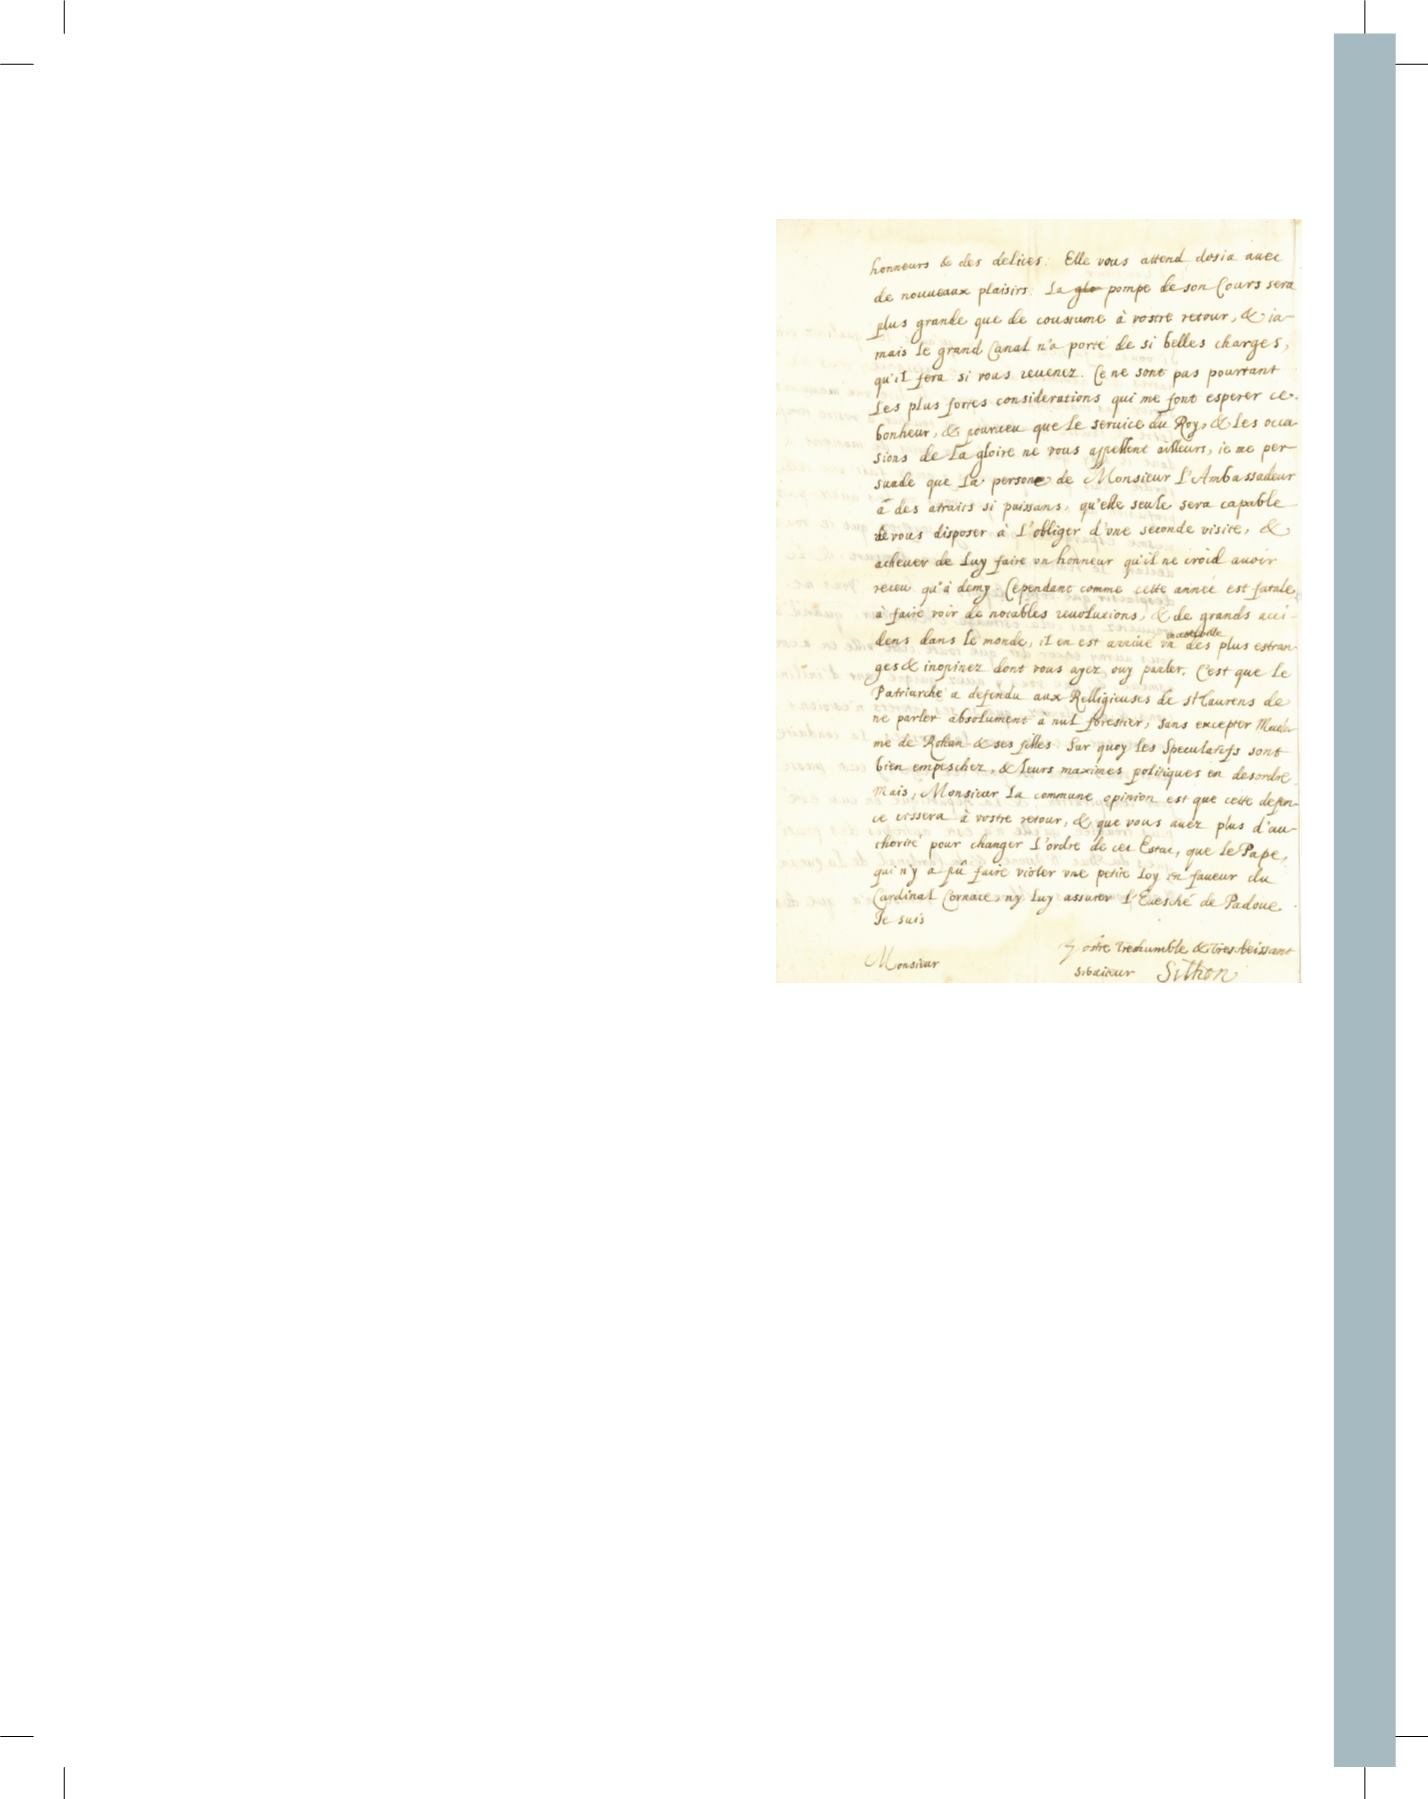 honneurs & des delices. Elle vous attend desia avec
de nouueaux plaisirs. La glo pompe de son Cours sera
plus grande que de coustume à vostre retour, & ia-
mais le grand Canal n'a porté de si belles charges,
qu'il fera si vous reuenez. Ce ne sont pas pourtant
les plus fortes considerations qui me font esperer ce
bonheur, & pourueu que le seruice du Roy, & les occa-
sions de la gloire ne vous appellent ailleurs, ie me per-
suade que la persone de Monsieur l'Ambassadeur
a des atraits si puissans, qu'elle seule sera capable
de vous disposer à l'obliger d'vne seconde visite, &
acheuer de luy faire vn honneur qu'il ne croid auoir
receu qu'à demy. Cependant comme cette année est fatale
à faire voir de notables reuolutions, & de grands acci-
dens dans le monde, il en est arriué vn des plus estran-
ges & inopinez dont vous ayez ouy parler. C'est que le
Patriarche a defendu aux Relligieuses de st Laurens de
ne parler absolument a nul forestier, sans excepter Mada-
me de Rohan & ses filles. Sur quoy les Speculatifs sont
bien empeschez, & leurs maximes politiques en desordre.
Mais, Monsieur la commune opinion est que cette defen-
ce cessera à vostre retour, & que vous auez plus d'au-
thorité pour changer l'ordre de cet Estat, que le Pape,
qui n'y a pû faire violer vne petite loy en faueur du
Cardinal Cornace, ny luy assurer l'Euesché de Padoue.
Je suis
Monsieur
Vostre treshumble & tres obeissant
seruiteur Silhon